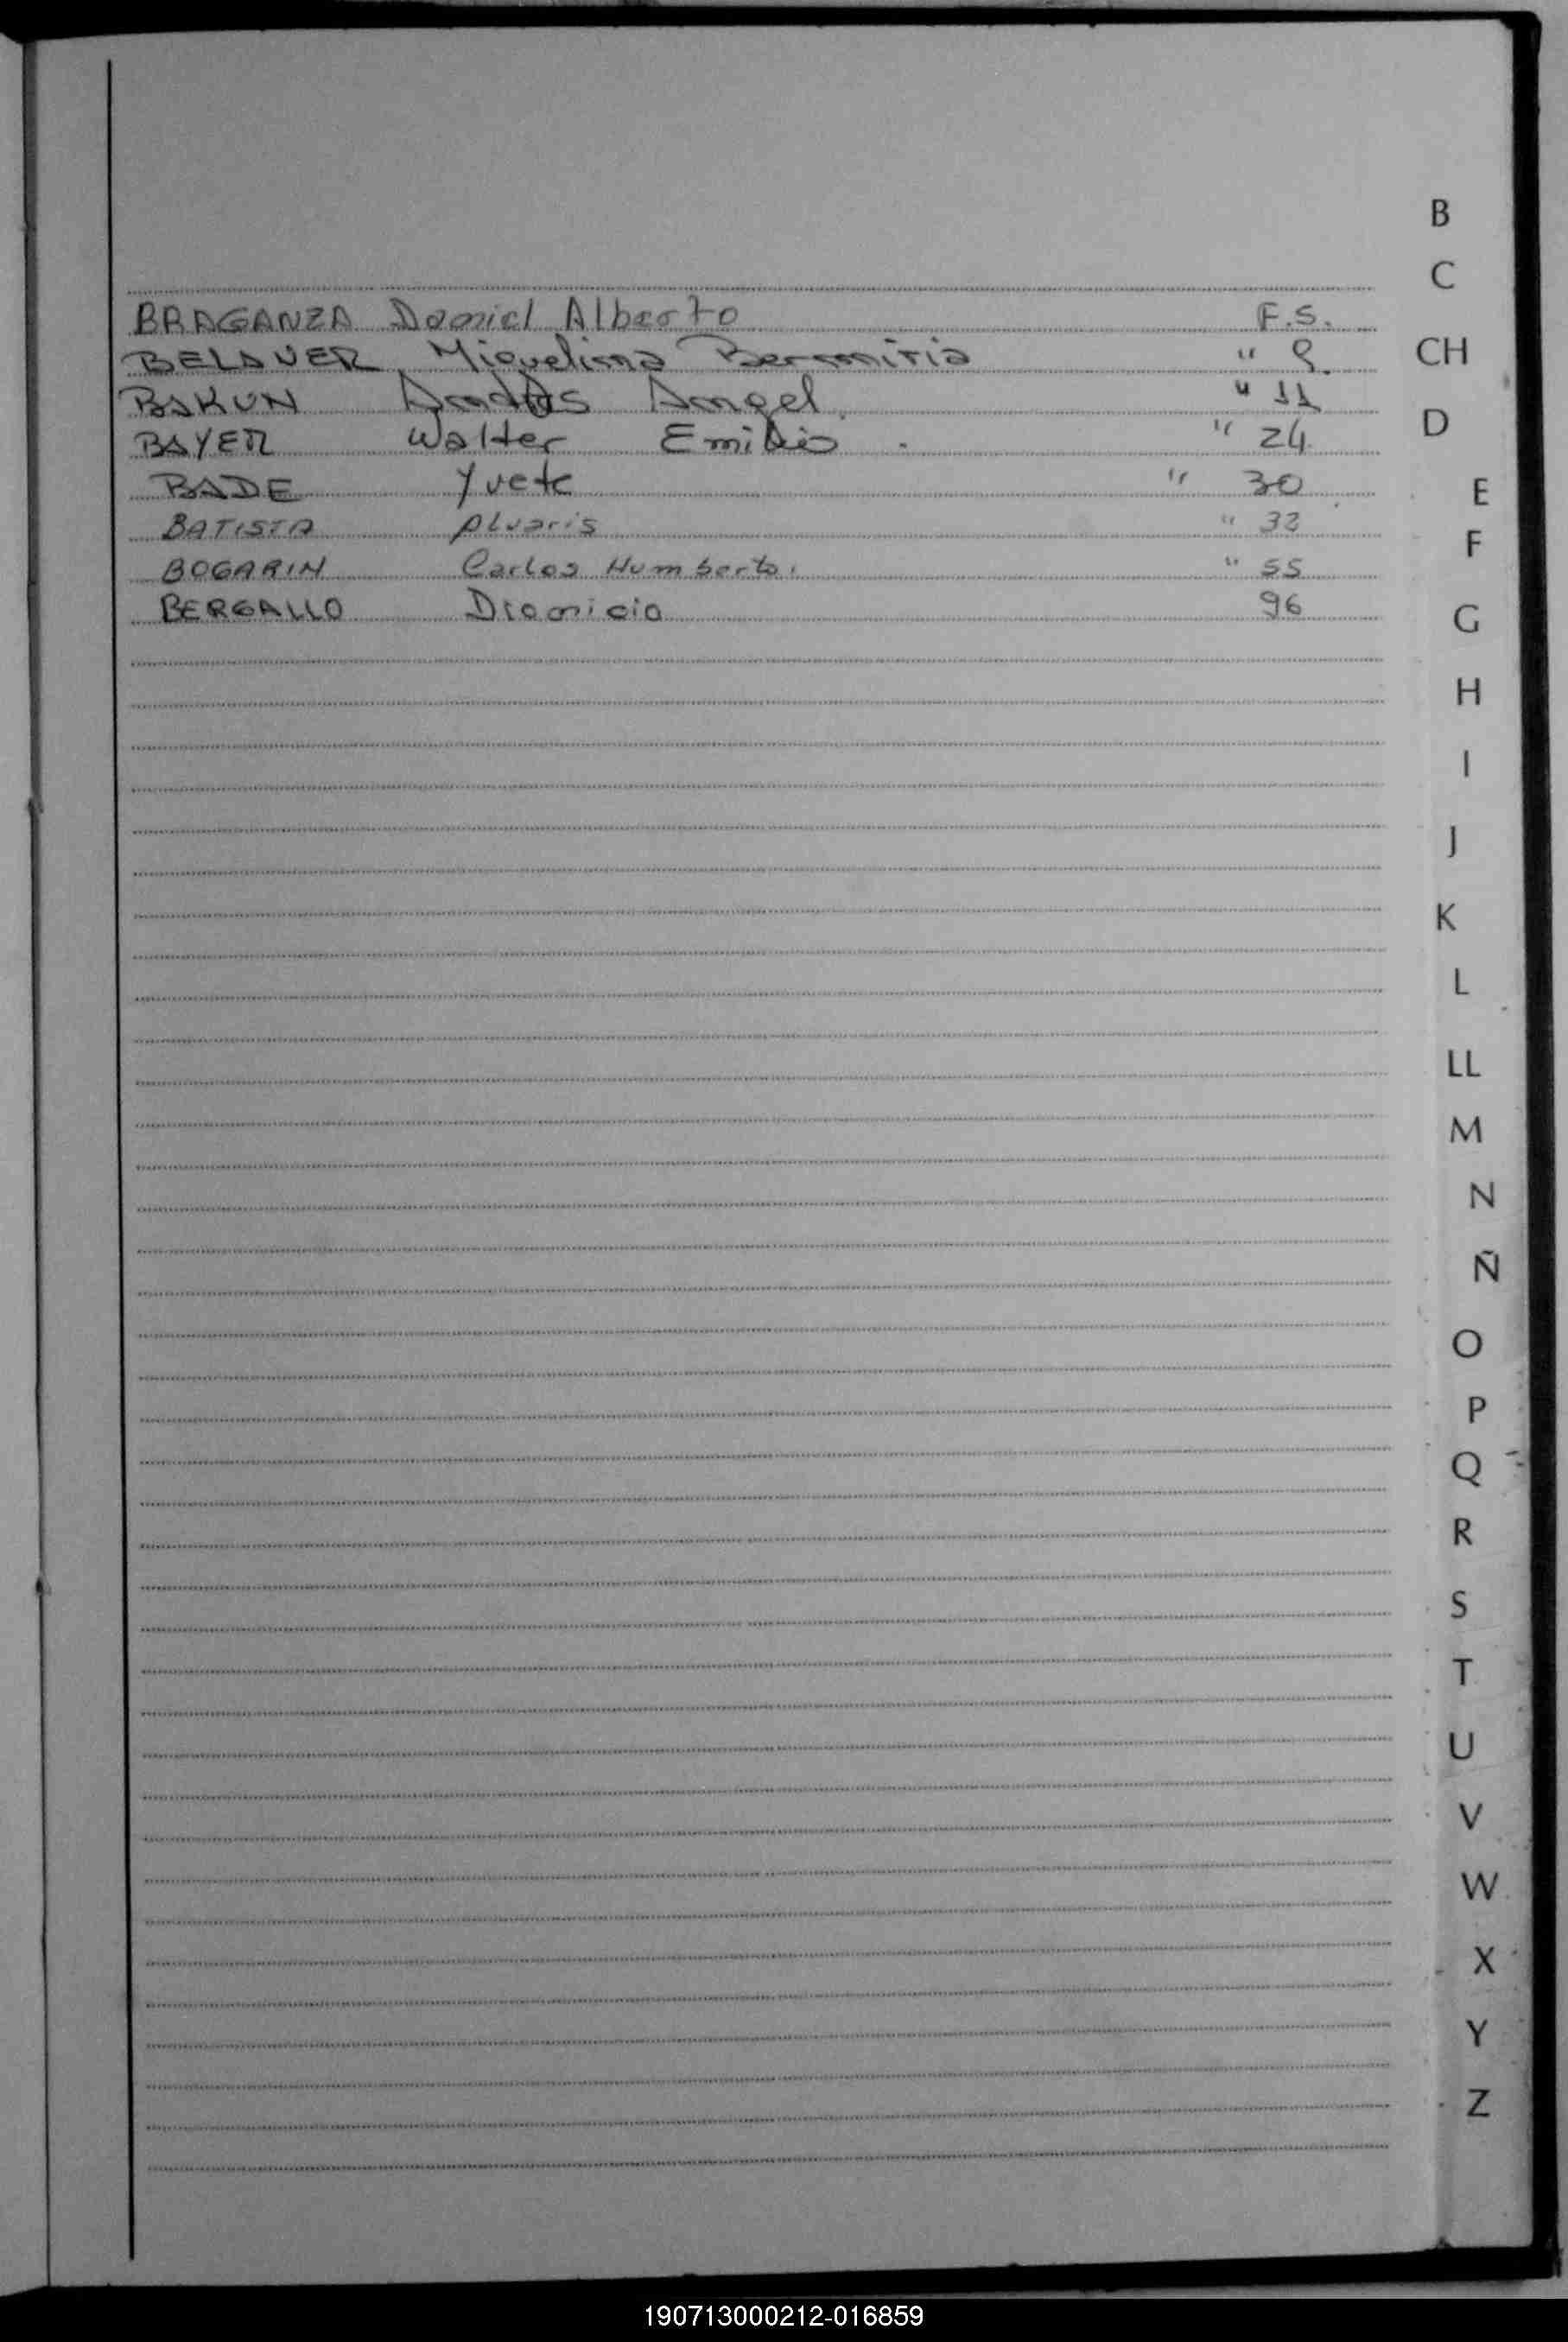 BRAGANZA Daniel Alberto F.S.
BELAVER Miquelina " 9.
BAKUN Angel. " 11
BAYER Walter Emilio . " 24
BADE Yvete " 30
BATISTA Alvaris " 32
BOGARIN Carlos Humberto. " 55
BERGALLO Dionicio 96
B
C
CH
D
E
F
G
H
I
J
K
L
LL
M
N
Ñ
O
P
Q
R
S
T
U
V
W
X
Y
Z
190713000212-016859